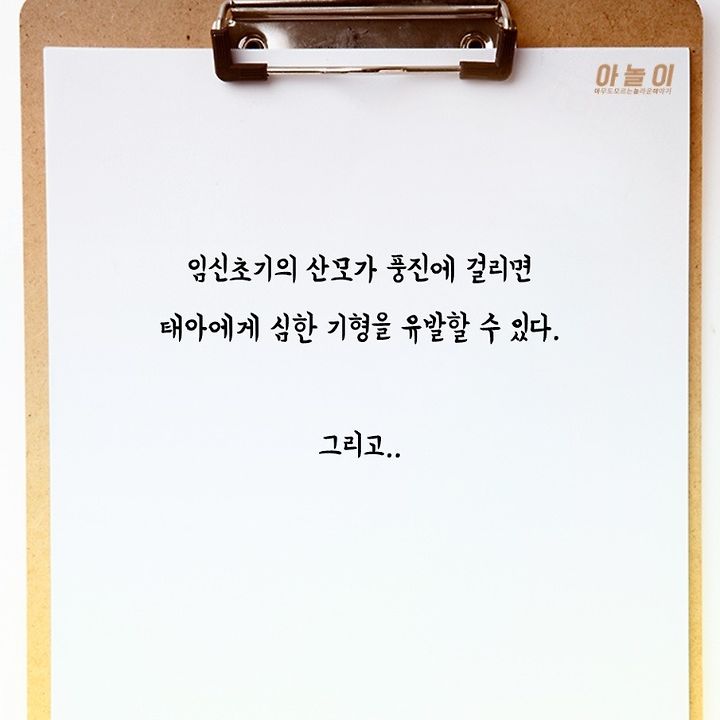 아놀이
아무도모르는놀라운이야기
임신초기의 산모가 풍진에 걸리면
태아에게 심한 기형을 유발할 수 있다.
그리고..